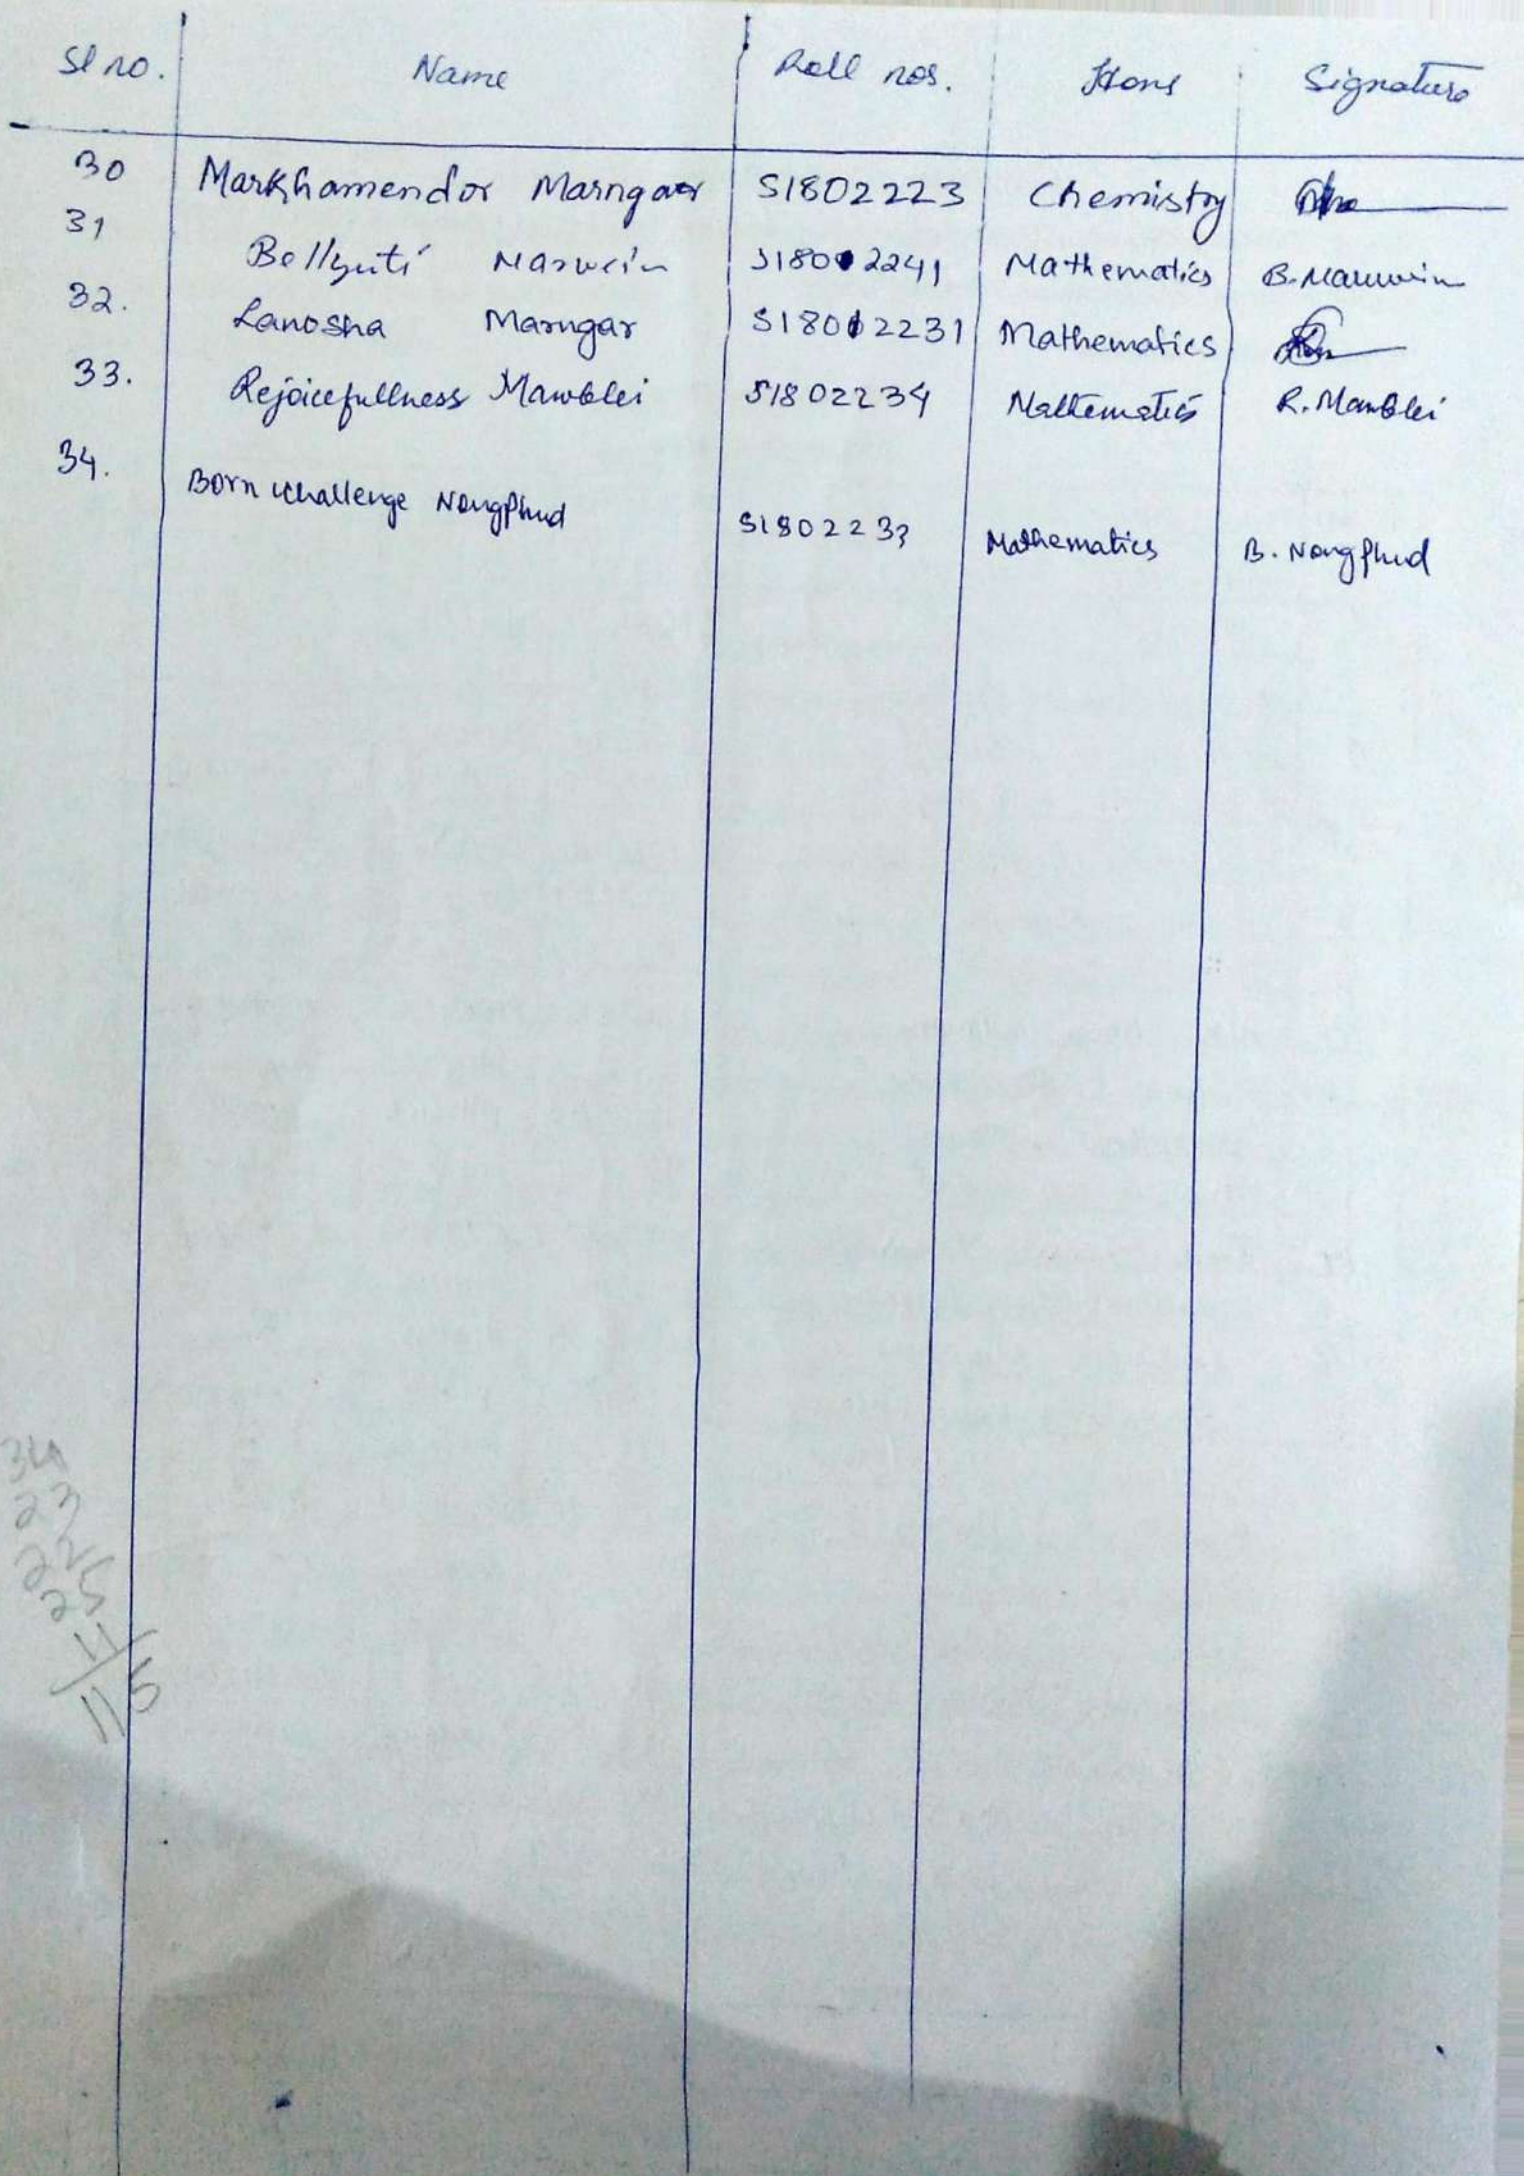 Sl no. Name Roll nos. Hons Signature
30 Markhamendor Marngar S1802223 Chemistry
31 Bellyuti Marwein S1802241 Mathematics B. Marwein
32. Lanosha Marngar S1802231 Mathematics
33. Rejoicefullness Mawblei S1802234 Mathematics R. Mawblei
34. Born challenge Nongphud S1802233 Mathematics B. Nongphud
34
23
22
25
11
115